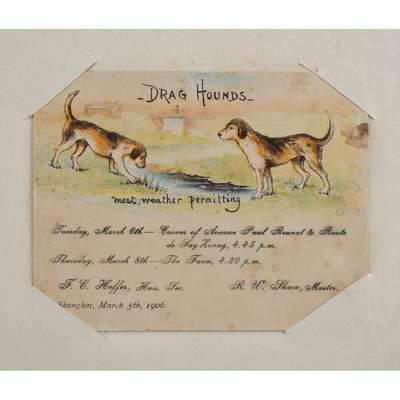 DRAG HOUNDS
meet, weather permitting
Tuesday, March 6th — Corner of Avenue Paul Brunat & Route
de Say Zoong, 4.45 p.m.
Thursday, March 8th — The Farm, 4.30 p.m.
F. C. Heffer, Hon. Sec. R. W. Shaw, Master.
Shanghai, March 5th, 1906.